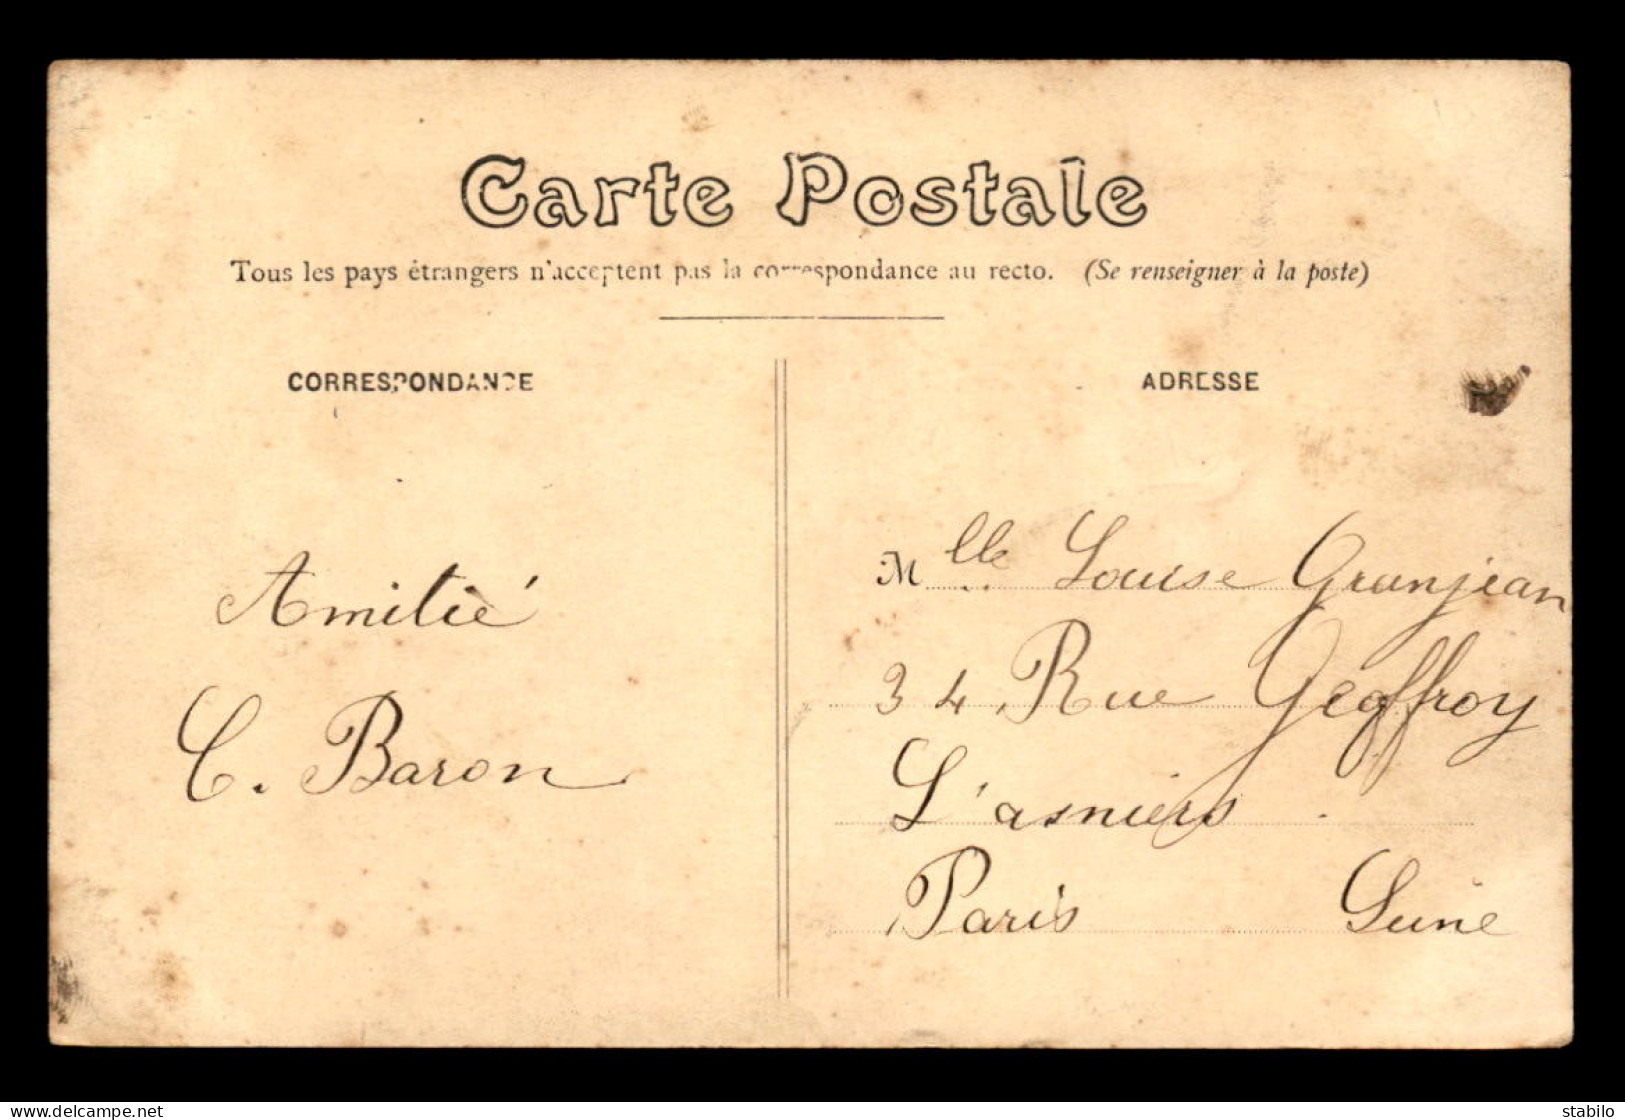 Carte Postale
Tous les pays étrangers n'acceptent pas la correspondance au recto. (Se renseigner à la poste)
CORRESPONDANCE
ADRESSE
Amitié
C. Baron
Mlle Louise Granjean
34, Rue Geoffroy
L'asniers
Paris Seine
stabilo